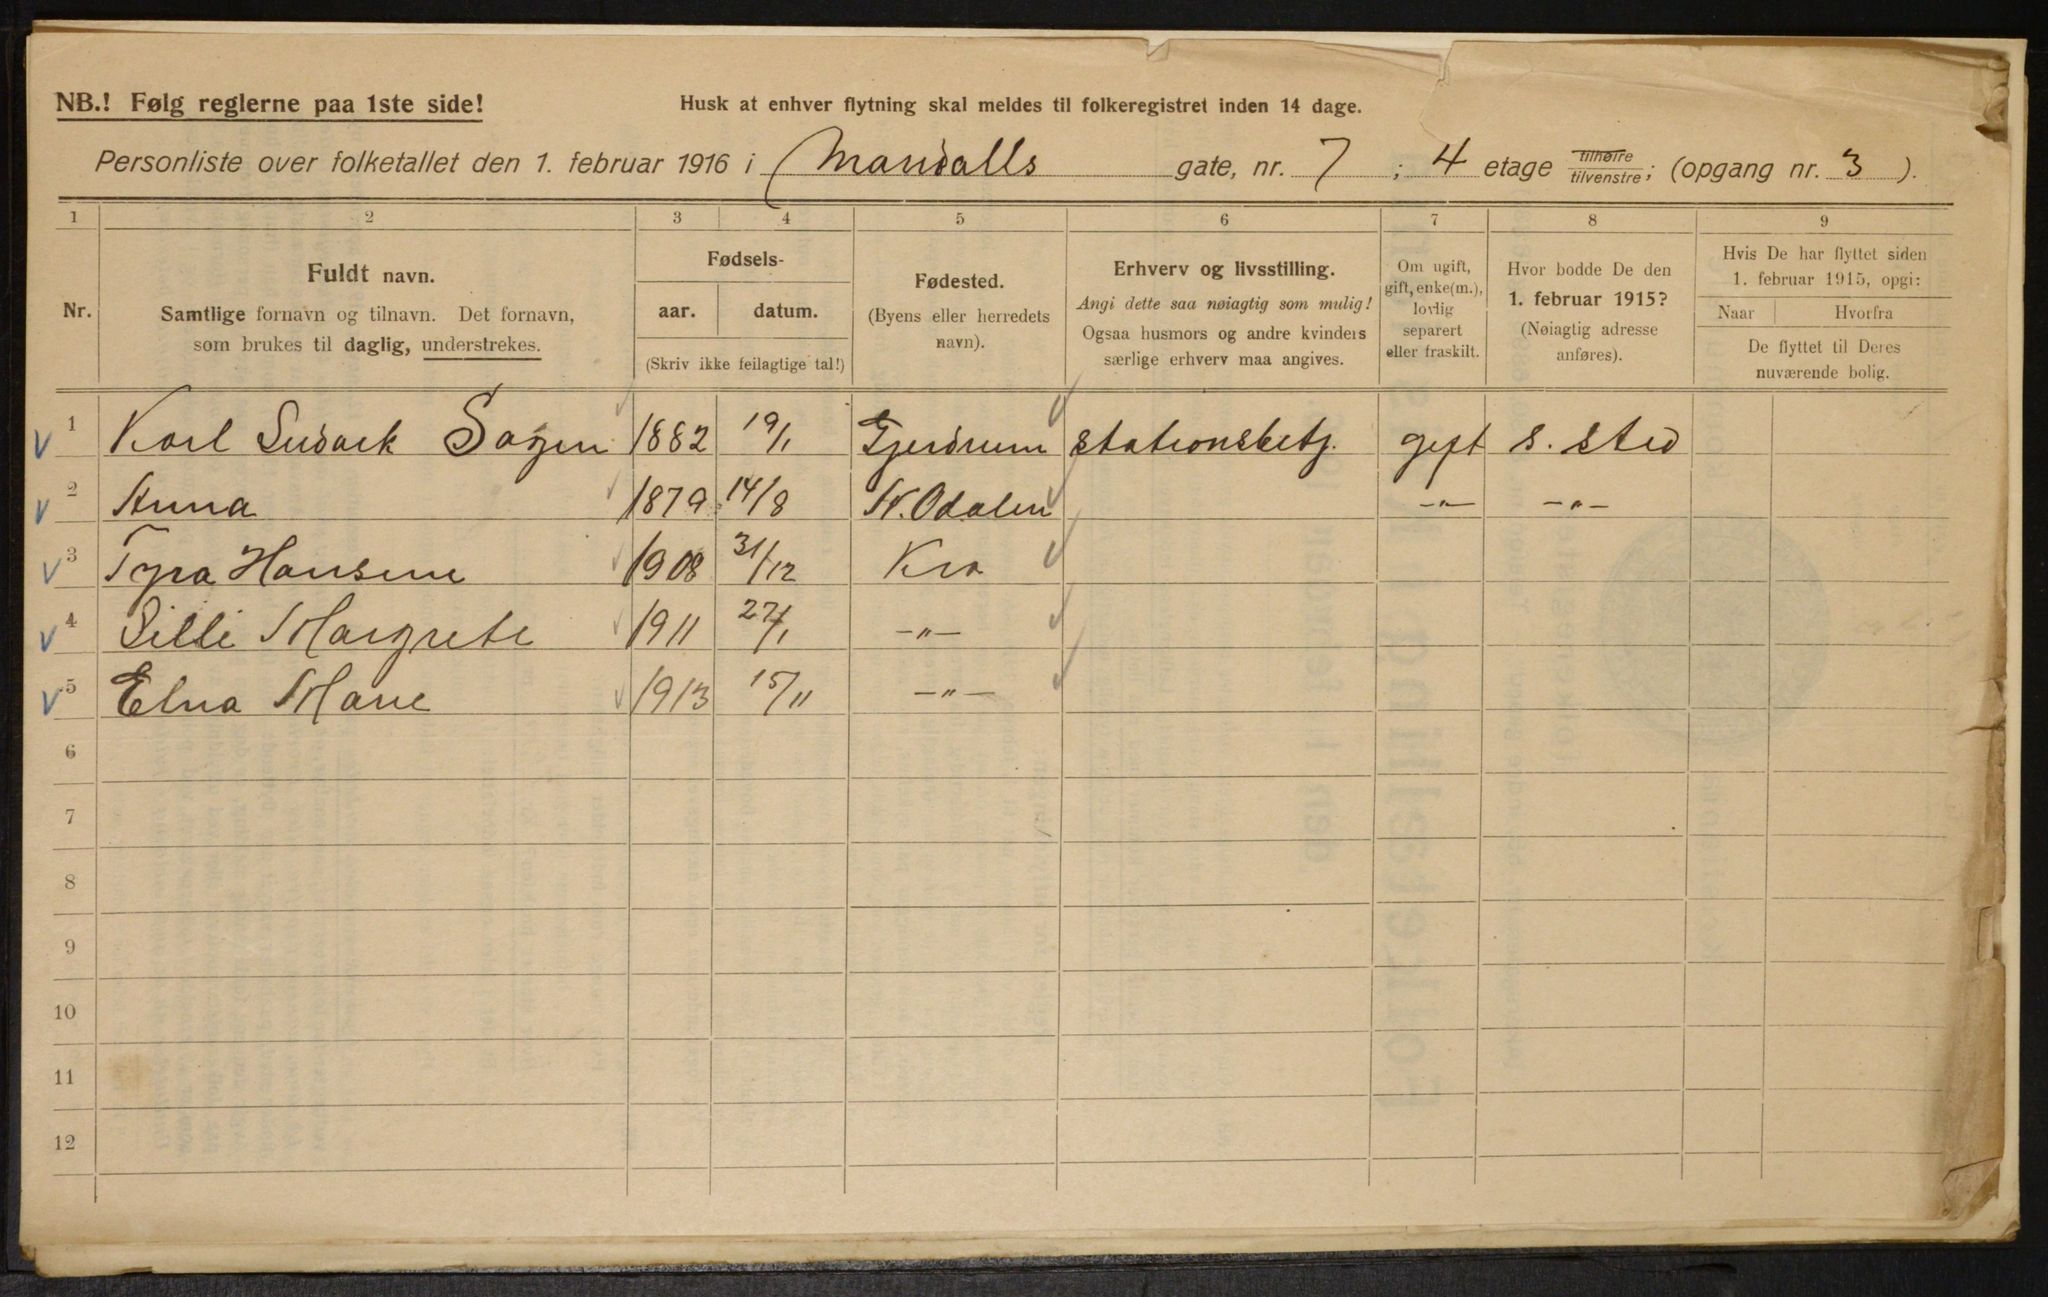 NB.! Følg reglerne paa 1ste side!
Husk at enhver flytning skal meldes til folkeregistret inden 14 dage.
Personliste over folketallet den 1. februar 1916 i Mandalls gate, nr. 7 ; 4 etage tilhøire tilvenstre; (opgang nr. 3 ).
1 2 3 4 5 6 7 8 9
Nr.
Fuldt navn.
Samtlige fornavn og tilnavn. Det fornavn,
som brukes til daglig, understrekes.
Fødsels-
aar. datum.
(Skriv ikke feilagtige tal!)
Fødested.
(Byens eller herredets
navn).
Erhverv og livsstilling.
Angi dette saa nøiagtig som mulig!
Ogsaa husmors og andre kvinders
særlige erhverv maa angives.
Om ugift,
gift, enke(m.),
lovlig
separert
eller fraskilt.
Hvor bodde De den
1. februar 1915?
(Nøiagtig adresse
anføres).
Hvis De har flyttet siden
1. februar 1915, opgi:
Naar Hvorfra
De flyttet til Deres
nuværende bolig.
1 Karl Sagen 1882 19/1 Gjerdrum stationsbetj. gift s. sted
2 Anna 1879 14/8 N. Odalen -"- -"-
3 Tyra Hansine 1908 31/12 Kra
4 Lilli Margrete 1911 27/1 -"-
5 Elna Marie 1913 15/11 -"-
6
7
8
9
10
11
12